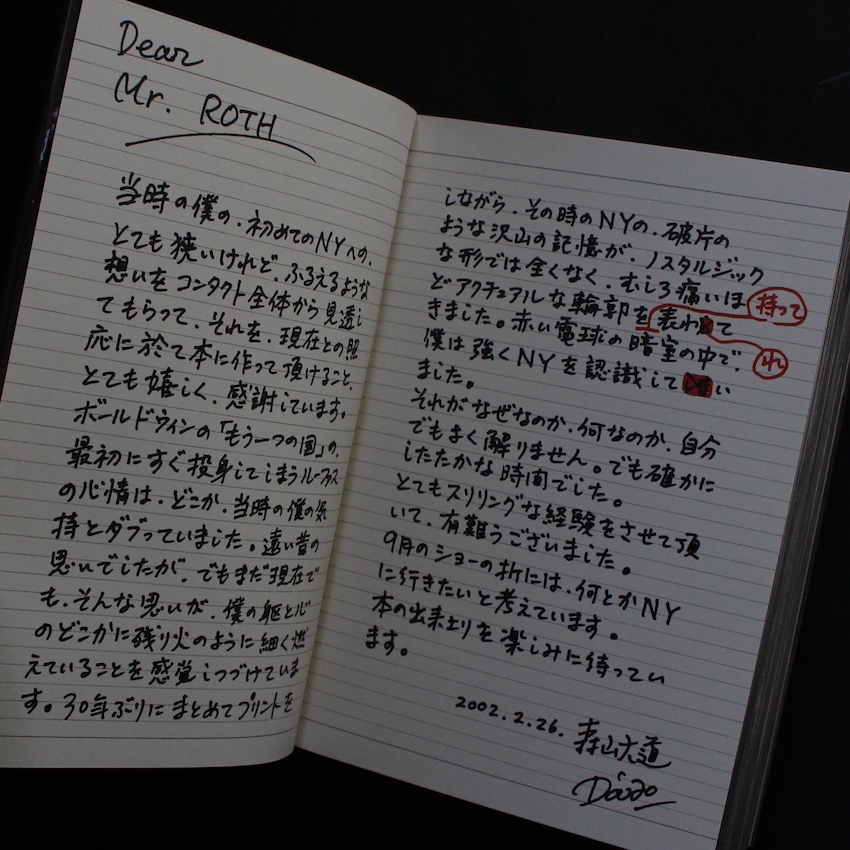 Dear
Mr. ROTH
当時の僕の、初めてのNYへの、
とても狭いけれど、ふるえるような
想いをコンタクト全体から見透し
てもらって、それを、現在との照
応に於て本に作って頂けること、
とても嬉しく、感謝しています。
ボールドウィンの「もう一つの国」の、
最初にすぐ投身してしまうルーファス
の心情は、どこか、当時の僕の気
持とダブっていました。遠い昔の
思いでしたが、でもまだ現在で
も、そんな思いが、僕の躯と心
のどこかに残り火のように細く燃
えていることを感覚しつづけていま
す。30年ぶりにまとめてプリントを
しながら、その時のNYの、破片の
ような沢山の記憶が、ノスタルジック
な形では全くなく、むしろ痛いほ
どアクチュアルな輪郭を表わ て
持って
れ
きました。赤い電球の暗室の中で、
僕は強くNYを認識して い
ました。
それがなぜなのか、何なのか、自分
でもよく解りません。でも確かに
したたかな時間でした。
とてもスリリングな経験をさせて頂
いて、有難うございました。
9月のショーの折には、何とかNY
に行きたいと考えています。
本の出来上りを楽しみに待ってい
ます。
2002.2.26. 森山大道
Daido